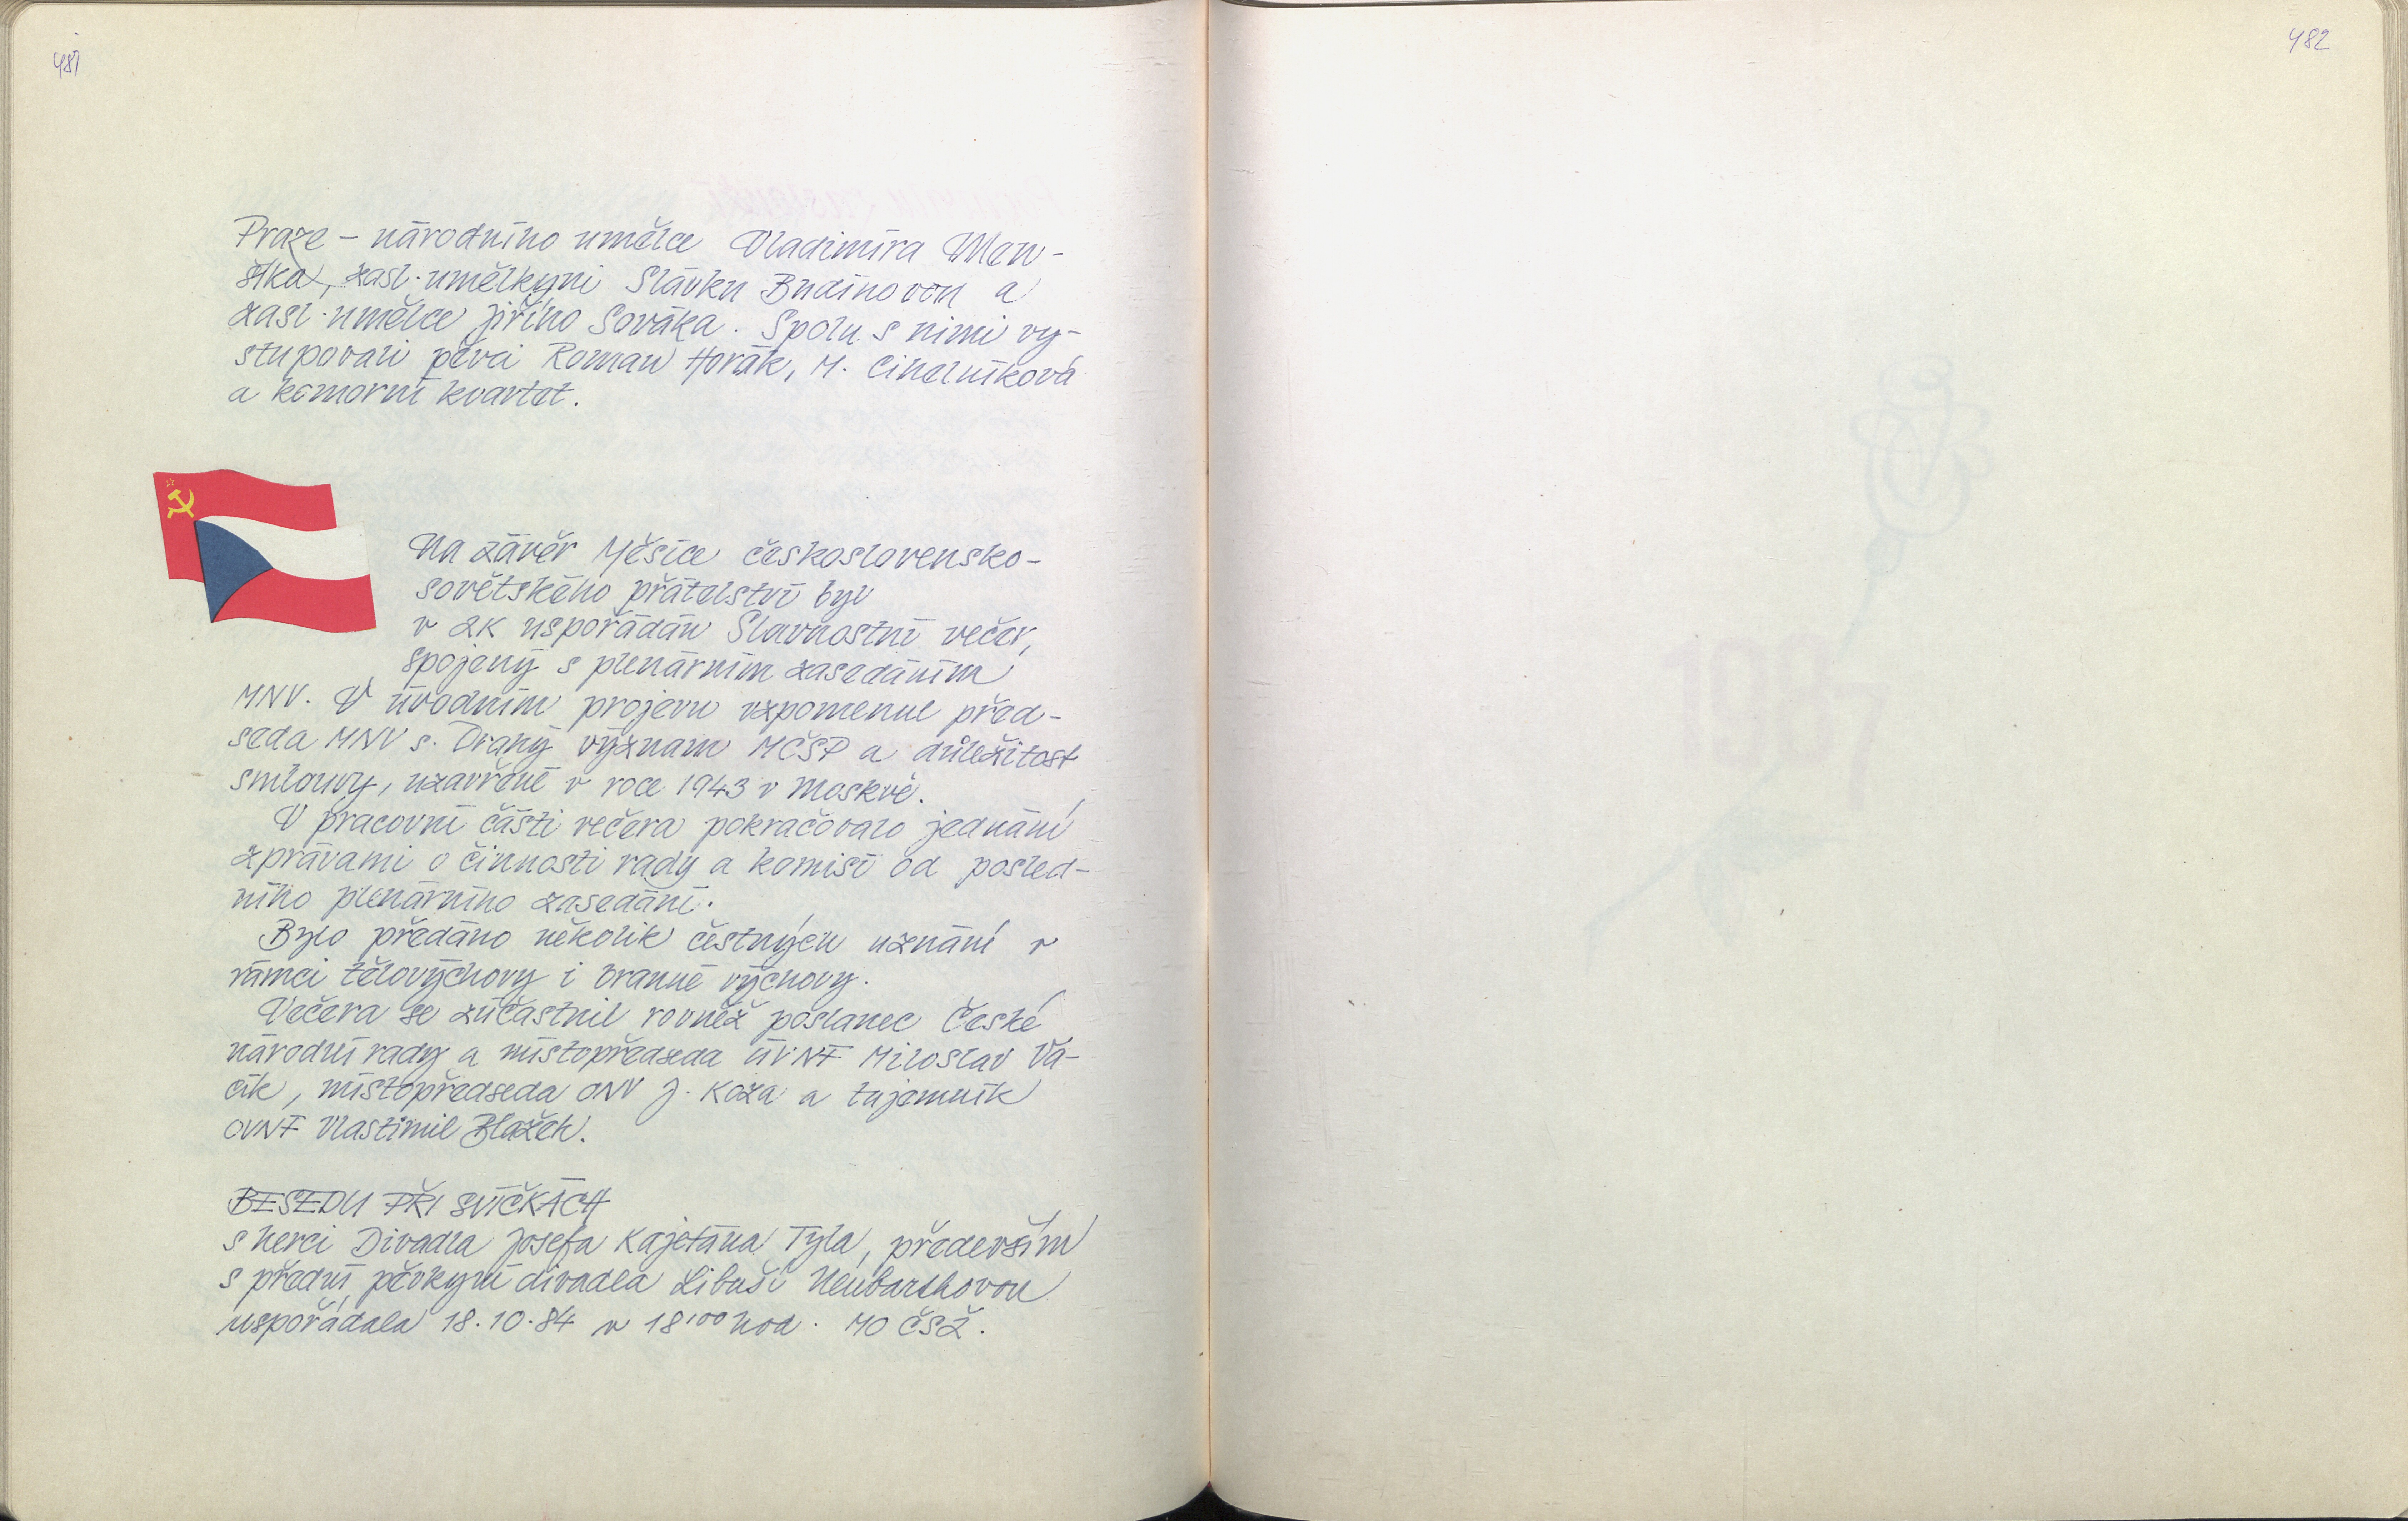 481
Praze - národního umělce Vladimíra Men-
šíka, zasl. umělkyni Slávku Budínovou a
zasl. umělce Jiřího Sováka. Spolu s nimi vy-
stupovali pěvci Roman Horák, M. Cihelníková
a komorní kvartet.
Na závěr Měsíce československo-
sovětského přátelství byl
v ZK uspořádán Slavnostní večer,
spojený s plenárním zasedáním
MNV. V úvodním projevu vzpomenul před-
seda MNV s. Drahý význam MČSP a důležitost
smlouvy, uzavřené v roce 1943 v Moskvě.
V pracovní části večera pokračovalo jednání
zprávami o činnosti rady a komisí od posled-
ního plenárního zasedání.
Bylo předáno několik čestných uznání v
rámci tělovýchovy i branné výchovy.
Večera se zúčastnil rovněž poslanec České
národní rady a místopředseda ÚV NF Miloslav Va-
cík, místopředseda ONV J. Koza a tajemník
OVNF Vlastimil Blažek.
BESEDU PŘI SVÍČKÁCH
s herci Divadla Josefa Kajetána Tyla, především
s přední pěvkyní divadla Libuší
uspořádala 18.10.84 v 18,00 hod. MO ČSŽ.
482